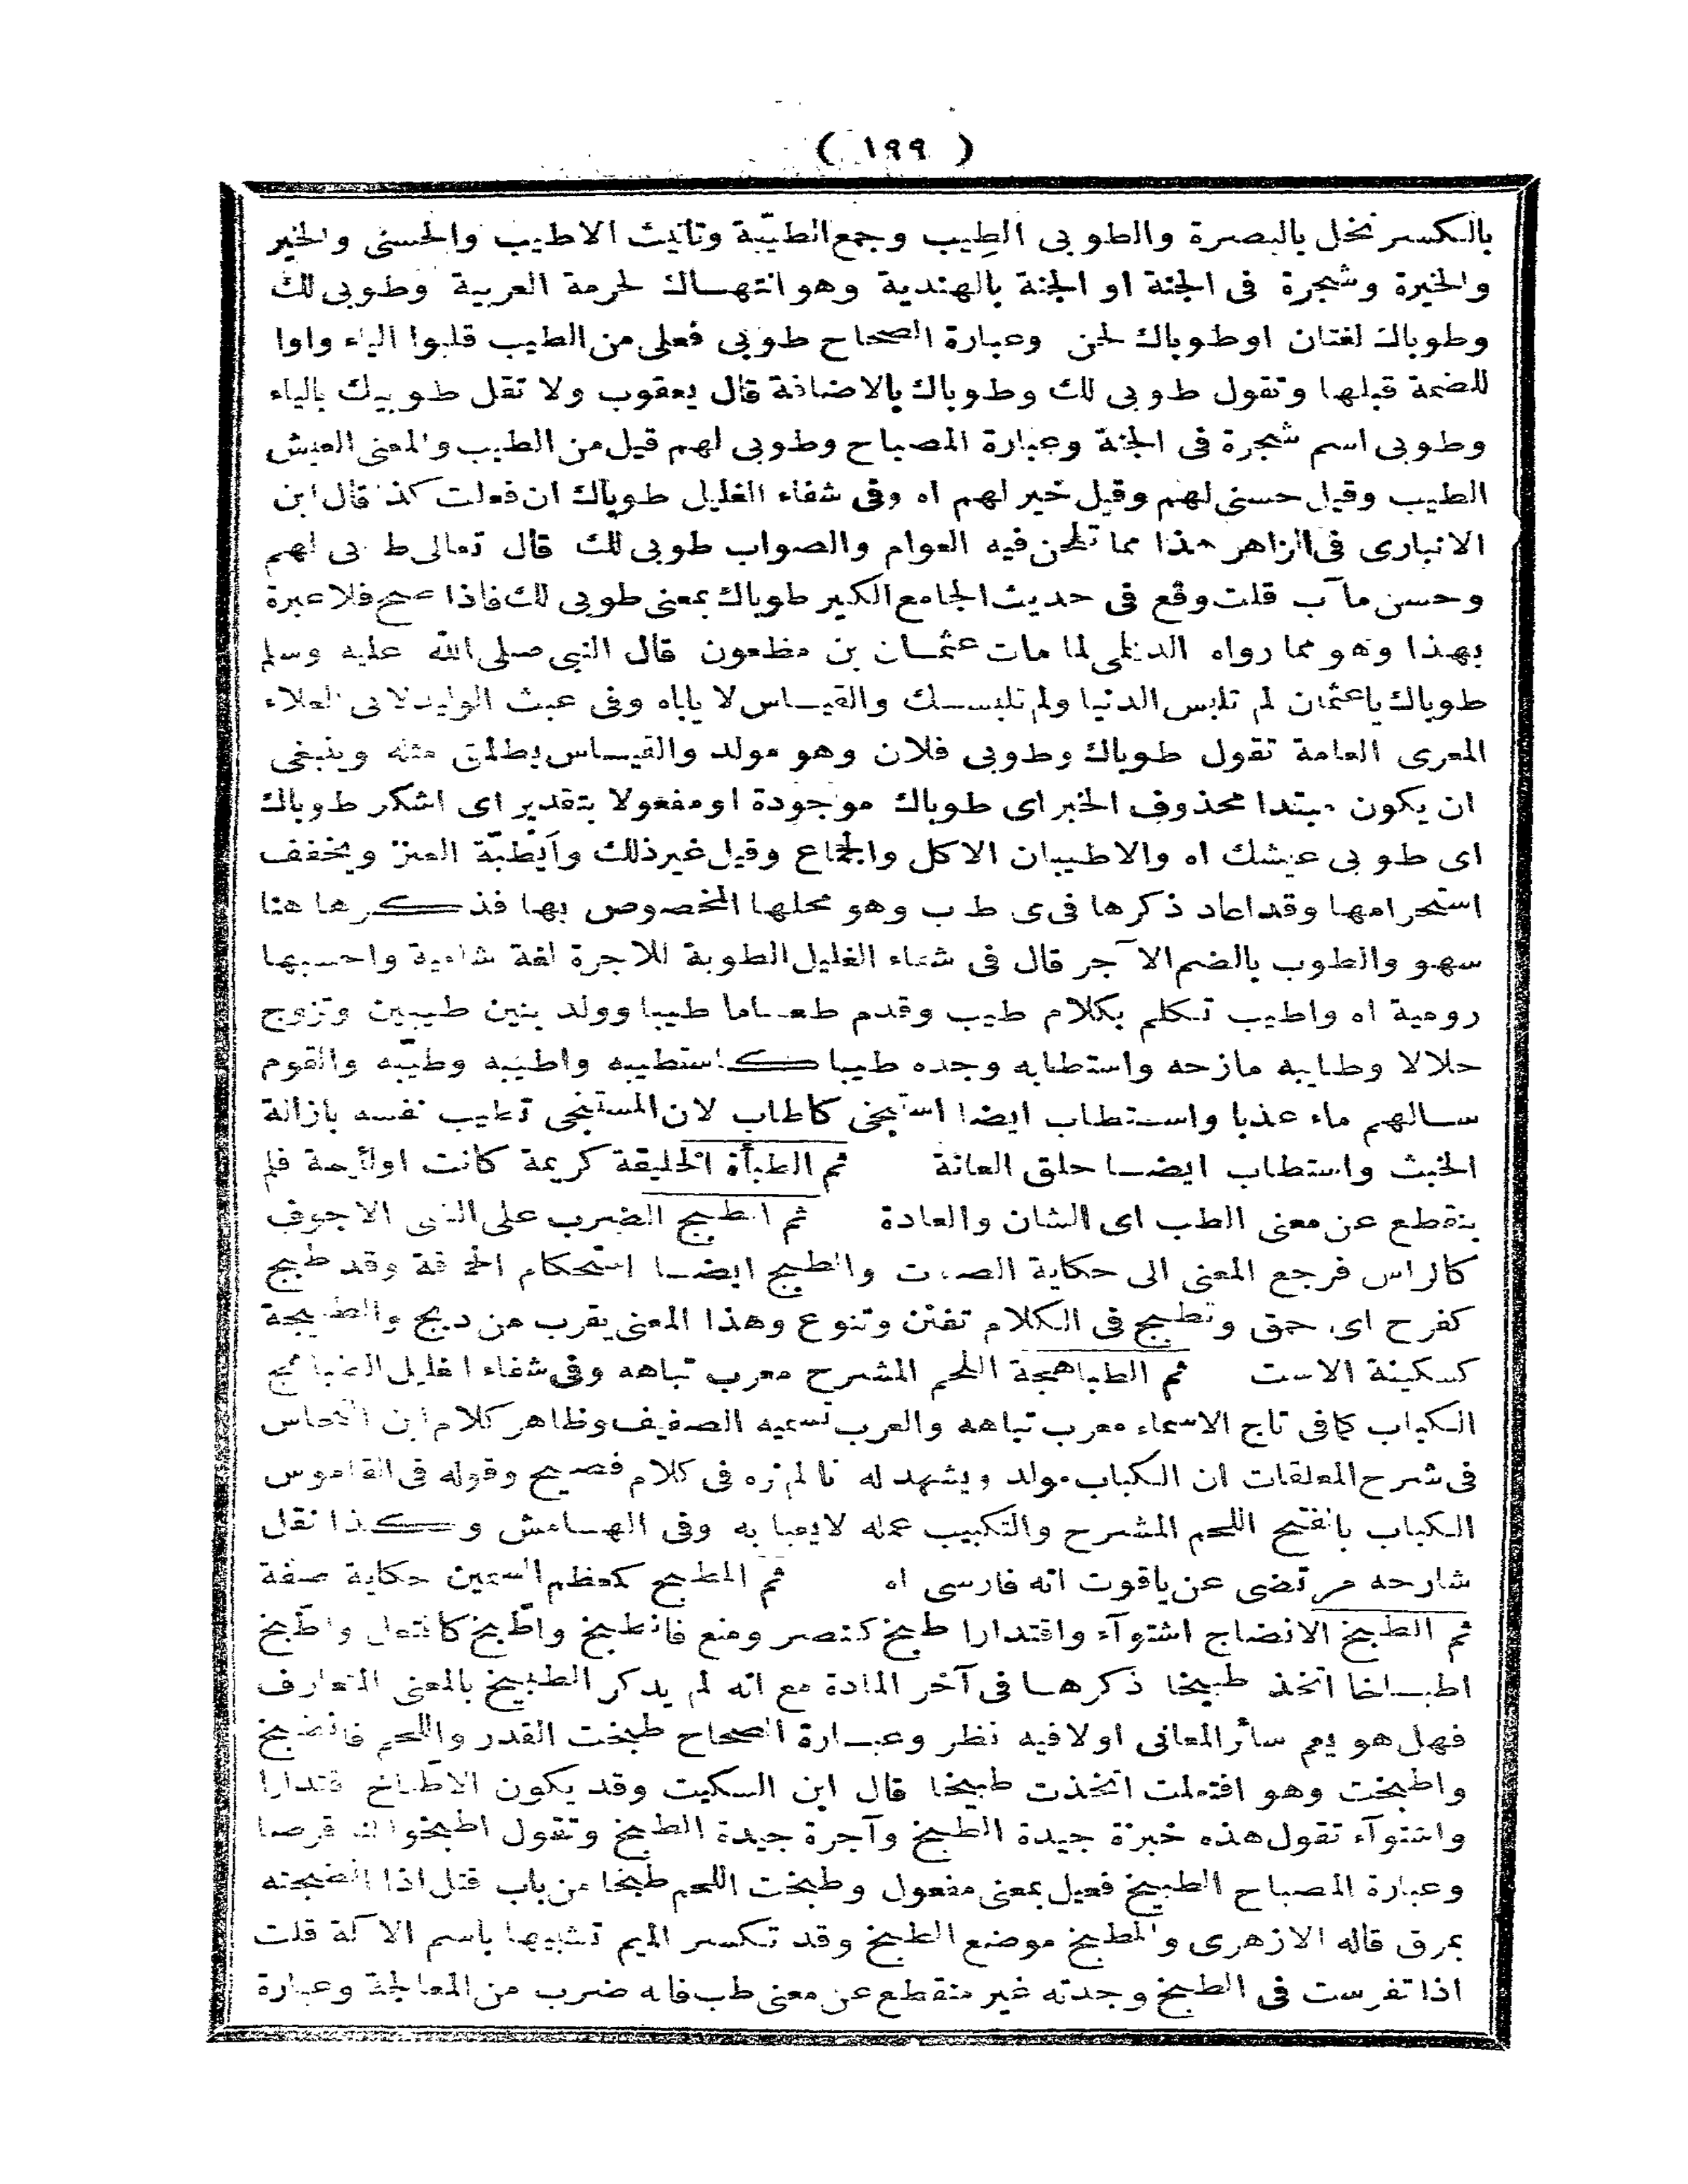 ( ١٩٩ )
بالكسر نخل بالبصرة والطوبى الطِيب وجمع الطيّبة وتانيث الاطيب والحسنى والخير
والخيرة وشجرة فى الجنة او الجنة بالهندية وهو انتهاك لحرمة العربية وطوبى لك
وطوباك لغتان اوطوباك لحن وعبارة الصحاح طوبى فُعلى من الطيب قلبوا الياء واوا
للضمة قبلها وتقول طوبى لك وطوباك بالاضافة قال يعقوب ولا تقل طوبيك بالياء
وطوبى اسم شجرة فى الجنة وعبارة المصباح وطوبى لهم قيل من الطيب والمعنى العيش
الطيب وقيل حسنى لهم وقيل خير لهم اه وفى شفاء الغليل طوباك ان فعلت كذا قال ابن
الانبارى فى الزاهر هذا مما تلحن فيه العوام والصواب طوبى لك قال تعالى طوبى لهم
وحسن مآب قلت وقع فى حديث الجامع الكبير طوباك بمعنى طوبى لك فاذا صح فلا عبرة
بهذا وهو مما رواه الديلمى لما مات عثمان بن مظعون قال النبى صلى الله عليه وسلم
طوباك ياعثمان لم تلبس الدنيا ولم تلبسك والقياس لا ياباه وفى عبث الوليد لابى العلاء
المعرى العامة تقول طوباك وطوبى فلان وهو مولد والقياس يطلق مثله وينبغى
ان يكون مبتدا محذوف الخبر اى طوباك موجودة او مفعولا بتقدير اى اشكر طوباك
اى طوبى عيشك اه والاطيبان الاكل والجماع وقيل غير ذلك وأيْطبّة العنز ويخفف
استحرامها وقد اعاد ذكرها فى ى ط ب وهو محلها المخصوص بها فذكرها هنا
سهو والطوب بالضم الآجر قال فى شفاء الغليل الطوبة للاجرة لغة شامية واحسبها
رومية اه واطيب تكلم بكلام طيب وقدم طعاما طيبا وولد بنين طيبين وتزوج
حلالا وطايبه مازحه واستطابه وجده طيبا كاستطيبه واطيبه وطيّبه والقوم
سالهم ماء عذبا واستطاب ايضا استنجى كاطاب لان المستنجى تطيب نفسه بازالة
الخبث واستطاب ايضا حلق العانة ثم الطبأة الخليقة كريمة كانت اولئيمة فلم
ينقطع عن معنى الطب اى الشان والعادة ثم الطبج الضرب على الشى الاجوف
كالراس فرجع المعنى الى حكاية الصوت والطبج ايضا استحكام الحماقة وقد طبج
كفرح اى حمق وتطبج فى الكلام تفنن وتنوع وهذا المعنى يقرب من دبج والطبيجة
كسكينة الاست ثم الطباهجة اللحم المشرح معرب تباهه وفى شفاء الغليل الطباهج
الكباب كما فى تاج الاسماء معرب تباهه والعرب تسميه الصفيف وظاهر كلام ابن النحاس
فى شرح المعلقات ان الكباب مولد ويشهد له انا لم نره فى كلام فصيح وقوله فى القاموس
الكباب بالفتح اللحم المشرح والتكبيب عمله لايعبا به وفى الهامش وكذا نقل
شارحه مرتضى عن ياقوت انه فارسى اه ثم المطبح كمعظم السمين حكاية صفة
ثم الطبخ الانضاج اشتوآء واقتدارا طبخ كنصر ومنع فانطبخ واطّبخ كافتعل واطّبخ
اطباخا اتخذ طبيخا ذكرها فى آخر المادة مع انه لم يدكر الطبيخ بالمعنى المتعارف
فهل هو يعم سائر المعانى اولا فيه نظر وعبارة الصحاح طبخت القدر واللحم فانطبخ
واطبخت وهو افتعلت اتخذت طبيخا قال ابن السكيت وقد يكون الاطّباخ اقتدارا
واشتوآء تقول هذه خبزة جيدة الطبخ وآجرة جيدة الطبخ وتقول اطبخوا لنا قرصا
وعبارة المصباح الطبيخ فعيل بمعنى مفعول وطبخت اللحم طبخا من باب قتل اذا انضجته
بمرق قاله الازهرى والمطبخ موضع الطبخ وقد تكسر الميم تشبيها باسم الآلة قلت
اذا تفرست فى الطبخ وجدته غير منقطع عن معنى طب فانه ضرب من المعالجة وعبارة